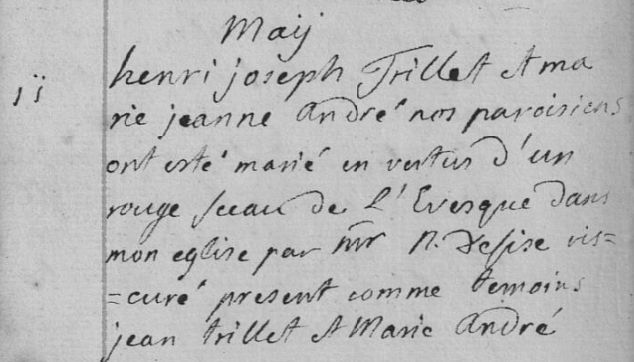 Maij
ii henri joseph Trillet et ma
rie jeanne André nos paroisiens
ont esté marié en vertus d'un
rouge sceau de L'Evesque dans
mon eglise par mr N. Defise vis=
=curé present comme temoins
jean trillet et Marie André